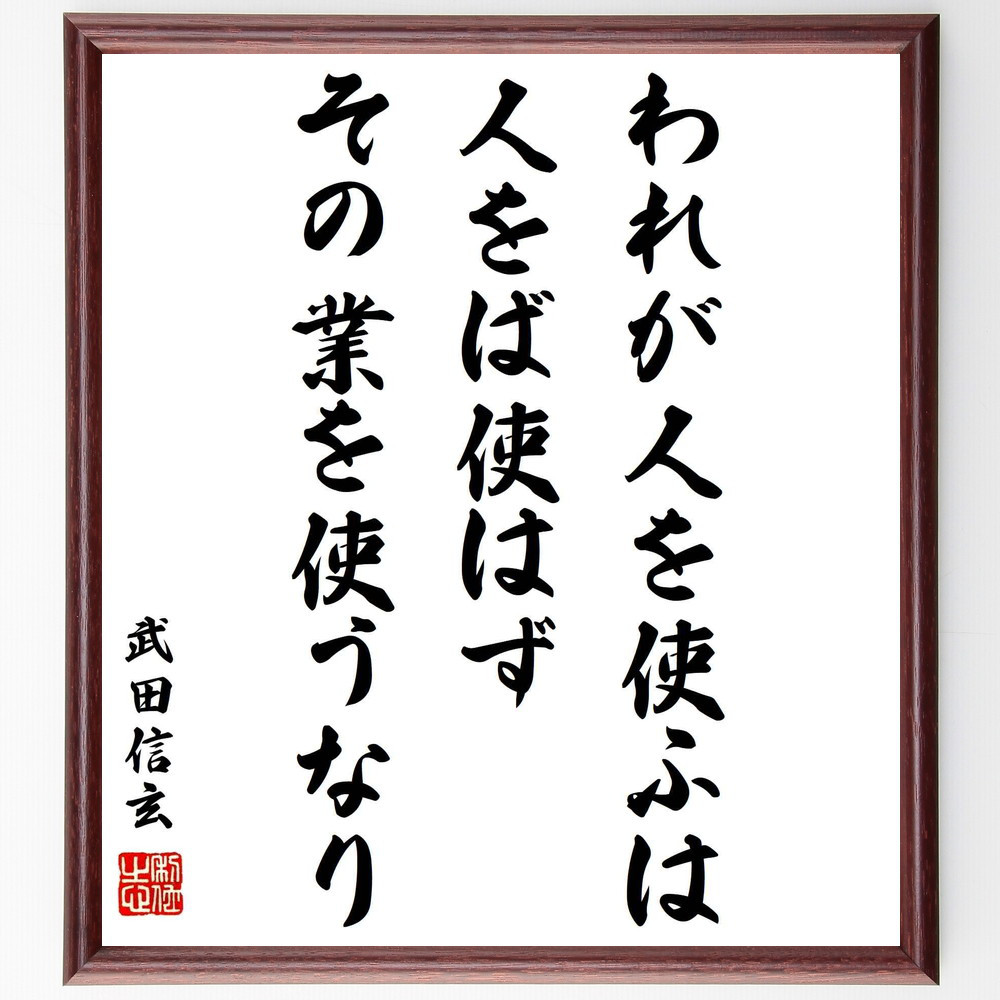 われが人を使ふは
人をば使はず
その業を使うなり
武田信玄